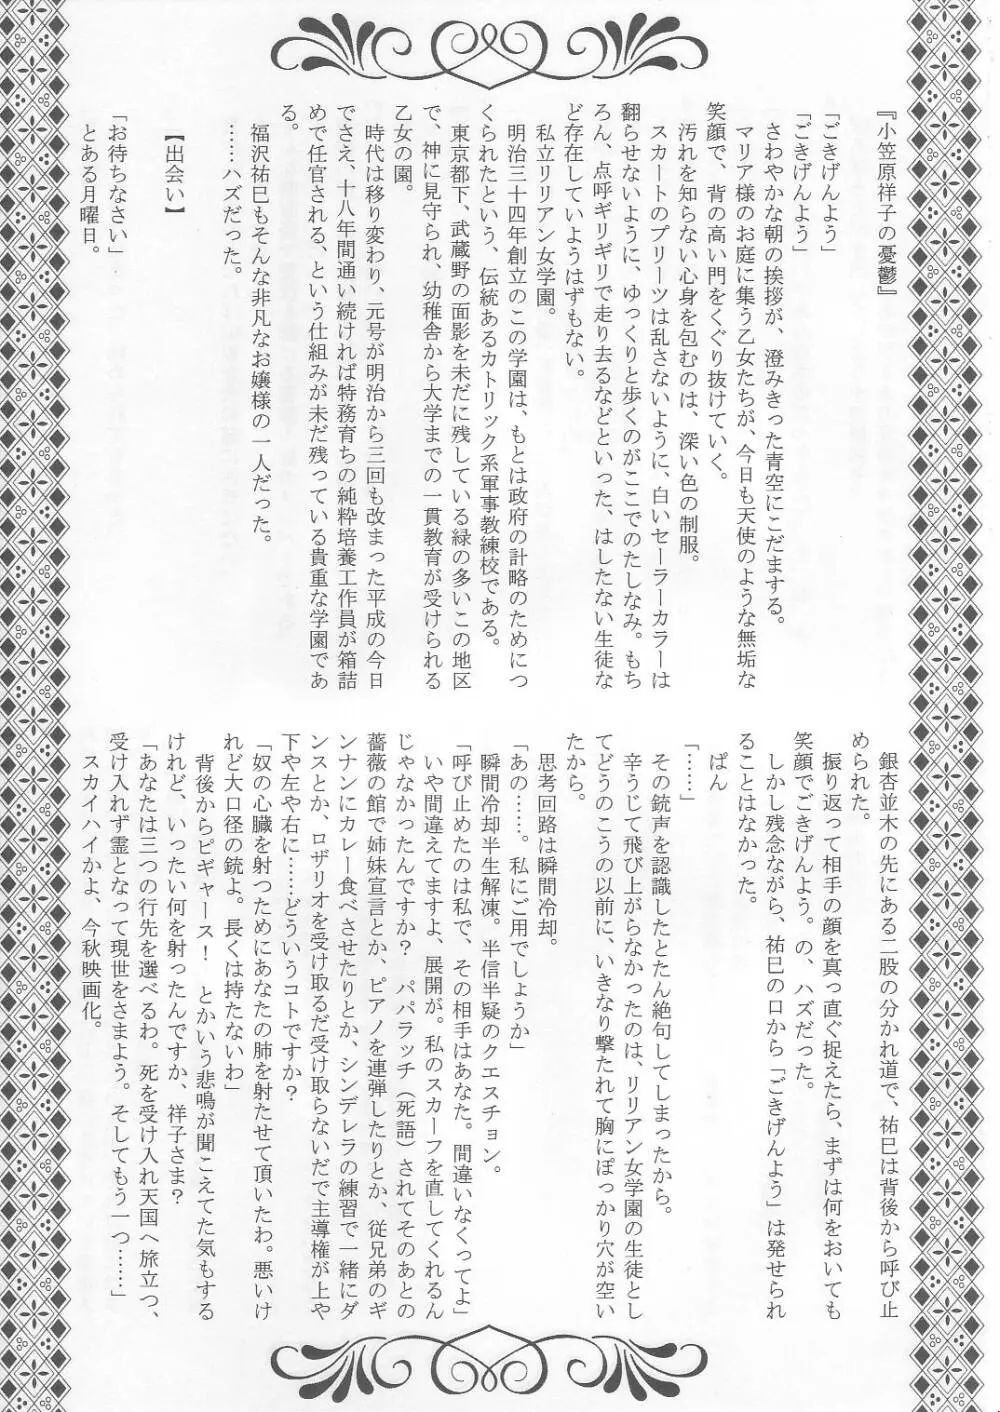 『小笠原祥子の憂鬱』
「ごきげんよう」
「ごきげんよう」
さわやかな朝の挨拶が、澄みきった青空にこだまする。
マリア様のお庭に集う乙女たちが、今日も天使のような無垢な
笑顔で、背の高い門をくぐり抜けていく。
汚れを知らない心身を包むのは、深い色の制服。
スカートのプリーツは乱さないように、白いセーラーカラーは
翻らせないように、ゆっくりと歩くのがここでのたしなみ。もち
ろん、点呼ギリギリで走り去るなどといった、はしたない生徒な
ど存在していようはずもない。
私立リリアン女学園。
明治三十四年創立のこの学園は、もとは政府の計略のためにつ
くられたという、伝統あるカトリック系軍事教練校である。
東京都下、武蔵野の面影を未だに残している緑の多いこの地区
で、神に見守られ、幼稚舎から大学までの一貫教育が受けられる
乙女の園。
時代は移り変わり、元号が明治から三回も改まった平成の今日
でさえ、十八年間通い続ければ特務育ちの純粋培養工作員が箱詰
めで任官される、という仕組みが未だ残っている貴重な学園であ
る。
福沢祐巳もそんな非凡なお嬢様の一人だった。
……ハズだった。
【出会い】
「お待ちなさい」
とある月曜日。
銀杏並木の先にある二股の分かれ道で、祐巳は背後から呼び止
められた。
振り返って相手の顔を真っ直ぐ捉えたら、まずは何をおいても
笑顔でごきげんよう。の、ハズだった。
しかし残念ながら、祐巳の口から「ごきげんよう」は発せられ
ることはなかった。
ぱん
「……」
その銃声を認識したとたん絶句してしまったから。
辛うじて飛び上がらなかったのは、リリアン女学園の生徒とし
てどうのこうの以前に、いきなり撃たれて胸にぽっかり穴が空い
たから。
思考回路は瞬間冷却。
「あの……。私にご用でしょうか」
瞬間冷却半生解凍。半信半疑のクエスチョン。
「呼び止めたのは私で、その相手はあなた。間違いなくってよ」
いや間違えてますよ、展開が。私のスカーフを直してくれるん
じゃなかったんですか？　パパラッチ（死語）されてそのあとの
薔薇の館で姉妹宣言とか、ピアノを連弾したりとか、従兄弟のギ
ンナンにカレー食べさせたりとか、シンデレラの練習で一緒にダ
ンスとか、ロザリオを受け取るだ受け取らないだで主導権が上や
下や左や右に……どういうコトですか？
「奴の心臓を射つためにあなたの肺を射たせて頂いたわ。悪いけ
れど大口径の銃よ。長くは持たないわ」
背後からピギャース！　とかいう悲鳴が聞こえてた気もする
けれど、いったい何を射ったんですか、祥子さま？
「あなたは三つの行先を選べるわ。死を受け入れ天国へ旅立つ、
受け入れず霊となって現世をさまよう。そしてもう一つ……」
スカイハイかよ、今秋映画化。